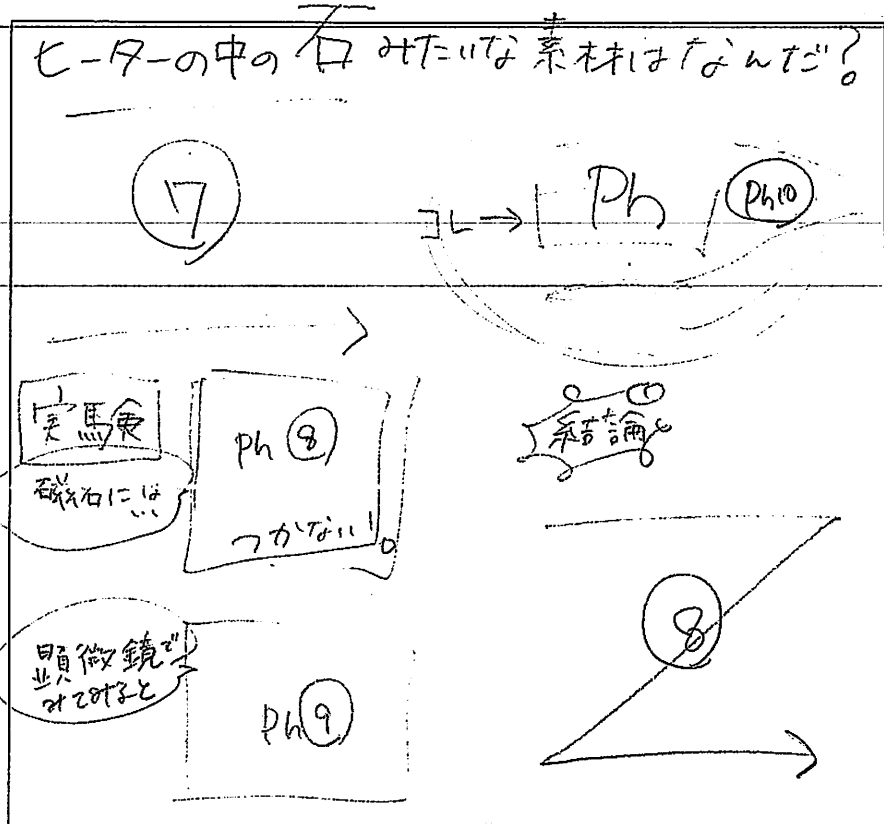 ヒーターの中の石みたいな素材はなんだ?
7
コレ→
Ph
Ph10
実験
磁石には…
Ph 8
つかない!。
結論
8
顕微鏡で
みてみると
Ph 9